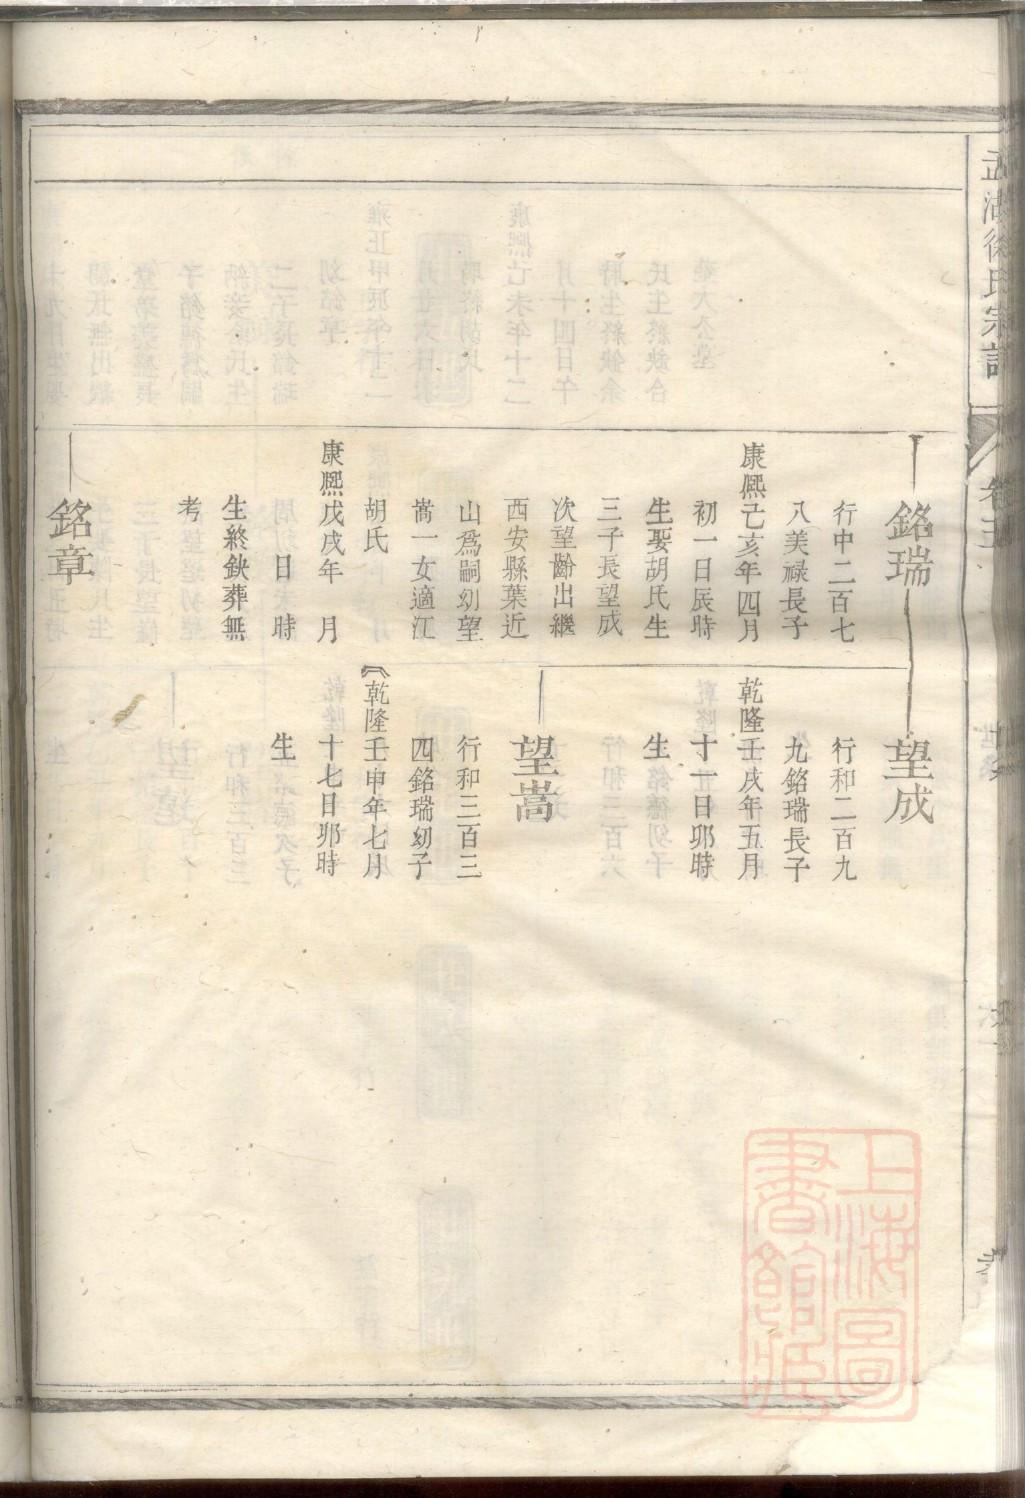 湖徐氏宗譜
銘瑞
行中二百七
八美祿長子
康熙己亥年四月
初一日辰時
生娶胡氏生
三子長望成
次望齡出繼
西安縣葉近
山爲嗣幼望
嵩一女適江
胡氏
康熙戊戌年　月
日　時
生終鈌葬無
考
銘章
望成
行和二百九
九銘瑞長子
乾隆壬戌年五月
十一日卯時
生
望嵩
行和三百三
四銘瑞幼子
乾隆壬申年七月
十七日卯時
生
上海圖
書館藏